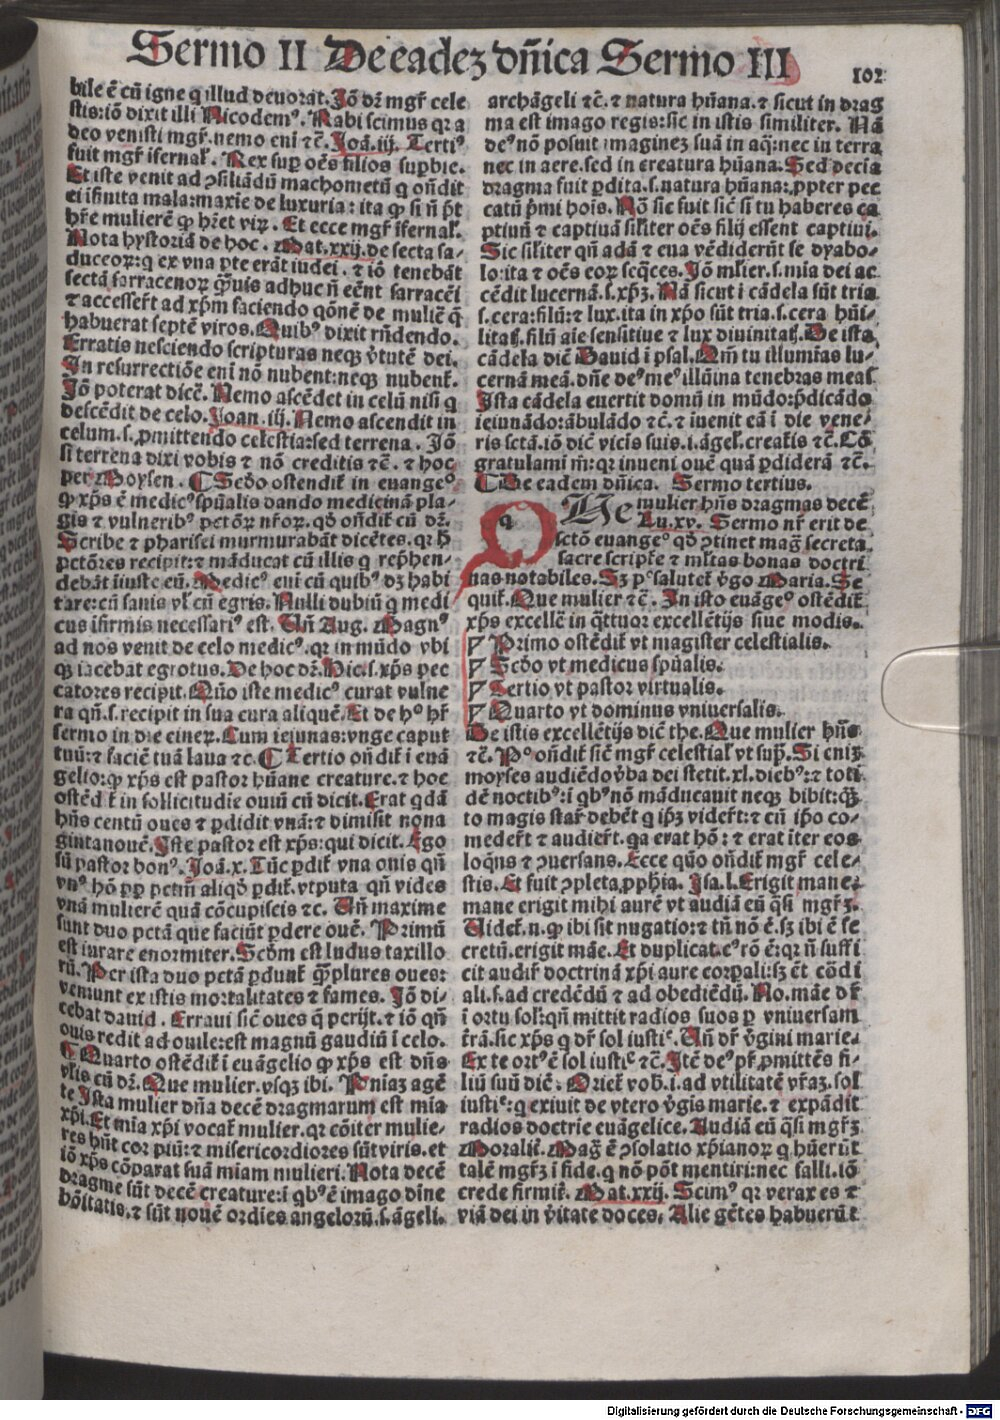 Sermo II De eadeʒ dñica Sermo III
102
bile ē cū igne q illud deuorat. Jō dʒ mgr̄ cele
stis: iō dixit illi Nicodemꝰ. Rabi scimus qꝛ a
deo venisti mgr̄. nemo eni ⁊c̄. Joā. iij. Tertiꝰ
fuit mgr̄ ifernaƚ. Rex suꝑ oēs filios supbie.
Et iste venit ad ꝯsiliādū machometū q oñdit
ei īfinita mala: maxie de luxuria: ita ꝙ si ñ p̄t
hr̄e mulierē ꝙ hr̄et viꝝ. Et ecce mgr̄ ifernaƚ.
Nota hystoriā de hoc. Mat. xxij. de secta sa-
duceoꝝ: q ex vna ꝑte erāt iudei. ⁊ iō tenebāt
sectā sarracenoꝝ q̄̃uis adhuc ñ eēnt sarracēi
⁊ accessert̄ ad xp̄m faciendo q̄onē de muliē q̄
habuerat septē viros. Quibꝰ dixit rn̄dendo.
Erratis nesciendo scripturas neqꝫ v̄tutē dei.
In resurrectiōe eni nō nubent: neqꝫ nubent̄.
Jō poterat dicē. Nemo ascēdet in celū nisi q
descēdit de celo. Joan. iij. Nemo ascendit in
celum. s. ꝓmittendo celestia: sed terrena. Jō
si terrena dixi vobis ⁊ nō creditis ⁊c̄. ⁊ hoc
per Moysen. ¶ Scđo ostendik̄ in euangeº
ꝙ xp̄s ē medicꝰ spūalis dando medicinā pla-
gis ⁊ vulneribꝰ pctōꝝ nr̄oꝝ. qđ oñdik̄ cū dʒ.
Scribe ⁊ pharisei murmurabāt dicētes. qꝛ h̄
pctōres recipit: ⁊ māducat cū illis q rep̄hen-
debāt iiuste eū. Medicꝰ eni cū quibꝰ dʒ habi
tare: cū sanis vƚ cū egris. Nulli dubiū q medi
cus īfirmis necessariꝰ est. Uñ Aug. Magnꝰ
ad nos venit de celo medicꝰ. qꝛ in mūdo vbi
qꝫ iacebat egrotus. De hoc dʒ. Hic. s. xp̄s pec
catores recipit. Qūo iste medicꝰ curat vulne
ra qñ. s. recipit in sua cura aliquē. Et de hº hr̄
sermo in die cineꝝ. Cum ieiunas: vnge caput
tuū: ⁊ faciē tuā laua ⁊c. ¶ Tertio oñdik̄ i euā
gelio: ꝙ xp̄s est pastor hūane creature. ⁊ hoc
ostēdk̄ in sollicitudie ouiū cū dicit. Erat qdā
hn̄s centū oues ⁊ ꝑdidit vnā: ⁊ dimisit nona
gintanouē. Iste pastor est xp̄s: qui dicit. Ego
sū pastor bonꝰ. Joā. x. Tūc ꝑdik̄ vna ouis qñ
vnꝰ hō ꝑꝑ pctm̄ aliqđ ꝑdik̄. vtputa qñ vides
vnā mulierē quā cōcupiscis ⁊c. Uñ maxime
sunt duo pctā que faciūt ꝑdere ouē. Primū
est iurare enormiter. Scđm est ludus taxillo
rū. Per ista duo pctā ꝑdunk̄ q̄̃plures oues:
veniunt ex istis mortalitates ⁊ fames. Jō di-
cebat dauid. Erraui sic̄ oues q̄ perijt. ⁊ iō qñ
ouis redit ad ouile: est magnū gaudiū i celo.
¶ Quarto ostēdik̄ i euāgelio ꝙ xp̄s est dñs
vlis cū dʒ. Que mulier. vsqꝫ ibi. Pniaʒ agē
te Ista mulier dña decē dragmarum est mia
xp̄i. Et mia xp̄i vocak̄ mulier. qꝛ cōiter mulie-
res hn̄t cor piū: ⁊ misericordiores sūt viris. et
iō xp̄s cōparat suā miam mulieri. Nota decē
dragme sūt decē creature: i qbꝰ ē imago diīne
bōitatis. ⁊ sūt nouē ordies angeloꝝ. s. āgeli.
archāgeli ⁊c̄. ⁊ natura hūana. ⁊ sicut in drag
ma est imago regis: sic in istis similiter. Nā
deꝰ nō posuit imaginez suā in aq: nec in terra
nec in aere. sed in creatura hūana. Sed decia
dragma fuit ꝑdita. s. natura hūana: ꝓpter pec
catū p̄mi hois. Nō sic fuit sic̄ si tu haberes ca
ptiuū ⁊ captiuā sil̄iter oēs filij essent captiui.
Sic sil̄iter qñ adā ⁊ eua vēdiderūt se dyabo-
lo: ita ⁊ oēs eoꝝ seq̄ces. Jō mlier. s. mia dei ac
cēdit lucernā. s. xp̄ʒ. Nā sicut i cādela sūt tria
s. cera: filū: ⁊ lux. ita in xp̄o sūt tria. s. cera hūi-
litaƚ. filū aīe sensitiue ⁊ lux diuinitaƚ. De ista
cādela dic̄ Dauid ī psal. Qm̄ tu illumīas lu-
cernā meā. dn̄e deꝰ meꝰ illūina tenebras meas
Ista cādela euertit domū in mūdo: p̄dicādo
ieiunādo: ābulādo ⁊c̄. ⁊ inuenit eā i die vene-
ris sctā. iō dic̄ vicis suis. i. āgeƚ. creatis ⁊c̄. Cō
gratulami m̄: qꝛ inueni ouē quā ꝑdiderā ⁊c̄.
¶ De eadem dñica. Sermo tertius.
QUe mulier hn̄s dragmas decē
Lu. xv. Sermo nr̄ erit de
sctō euangeº qđ ꝯtinet mag̃ secreta
sacre script̄e ⁊ ml̄tas bonas doctri
nas notabiles. Sʒ pº salutet̄ v̄go Maria. Se
quik̄. Que mulier ⁊c̄. In isto euāgeº ostēdik̄
xp̄s excellē in q̄ttuor excellētijs siue modis.
Primo ostēdik̄ vt magister celestialis.
Scđo vt medicus spūalis.
Tertio vt pastor virtualis.
Quarto vt dominus vniuersalis.
De istis excellētijs dic̄ the. Que mulier hn̄s
⁊c̄. Pº oñdik̄ sic̄ mgr̄ celestiaƚ vt sup̄. Si enīʒ
moyses audiēdo v̄ba dei stetit. xl. diebꝰ: ⁊ toti
dē noctibꝰ: ī qbꝰ nō māducauit neqꝫ bibit: q̄̃
to magis star̄ debēt q ipʒ videt̄t: ⁊ cū ip̄o co-
medet̄t ⁊ audiet̄t. qa erat hō: ⁊ erat iter eos
loqn̄s ⁊ ꝯuersans. Ecce qūo oñdik̄ mgr̄ cele-
stis. Et fuit ꝯpleta ꝓphia. Isa. l. Erigit mane:
mane erigit mihi aurē vt audiā eū q̄si mgr̄ʒ.
Uidek̄. n. ꝙ ibi sit nugatio: ⁊ tn̄ nō ē. sʒ ibi ē se
cretū. erigit māe. Et duplicat. eꝰ rō ē: qꝛ ñ suffi
cit audir̄ doctrinā xp̄i aure corꝑali: sʒ ēt cōdi
ali. s. ad credēdū ⁊ ad obediēdū. No. māe dr̄
i ortu solʼ: qñ mittit radios suos ꝑ vniuersam
t̄rā. sic xp̄s q dr̄ sol iustiᵉ. Uñ dr̄ v̄gini marie.
Ex te ortꝰ ē sol iustiᵉ ⁊c̄. Itē deꝰ pr̄ ꝓmittēs fi-
liū suū dic̄. Orietʼ vob. i. ad vtilitatē vr̄aʒ. sol
iustiᵉ: q exiuit de vtero v̄gis marie. ⁊ expādit
radios doctrie euāgelice. Audiā eū q̄si mgr̄ʒ
Moralit̄. Mag̃ ē ꝯsolatio xp̄ianoꝝ q hūerūt
talē mgr̄ʒ i fide. q nō pōt mentiri: nec falli. iō
crede firmit̄. Mat. xxij. Scimꝰ qꝛ verax es ⁊
viā dei in v̄itate doces. Alie gētes habuerūt
Digitalisierung gefördert durch die Deutsche Forschungsgemeinschaft - DFG